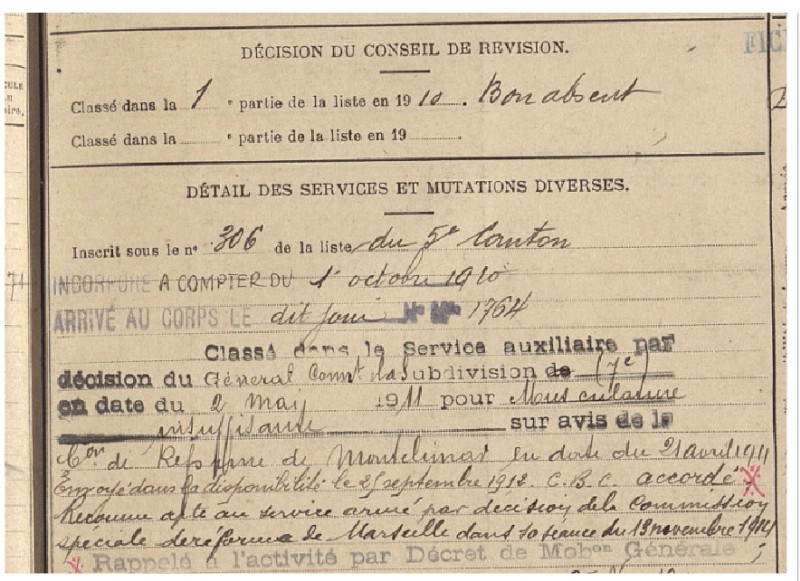 DÉCISION DU CONSEIL DE REVISION.
Classé dans la 1 e partie de la liste en 1910. Bon absent
Classé dans la e partie de la liste en 19
DÉTAIL DES SERVICES ET MUTATIONS DIVERSES.
Inscrit sous le n° 306 de la liste du 5e Canton
INCORPORÉ A COMPTER DU 1er octobre 1910
ARRIVÉ AU CORPS LE dit jour N° Mle 1764
Classé dans le Service auxiliaire par
décision du Général Commt la Subdivision de (7e)
en date du 2 Mai 1911 pour Musculature
insuffisante sur avis de la
Con de Réforme de Montelimar en date du 21 avril 1911
Envoyé dans la disponibilité le 25 septembre 1912. C.B.C. accordé
Reconnu apte au service armé par décision de la Commission
spéciale de réforme de Marseille dans sa séance du 13 novembre 1914
Rappelé à l'activité par Décret de Mobon Générale